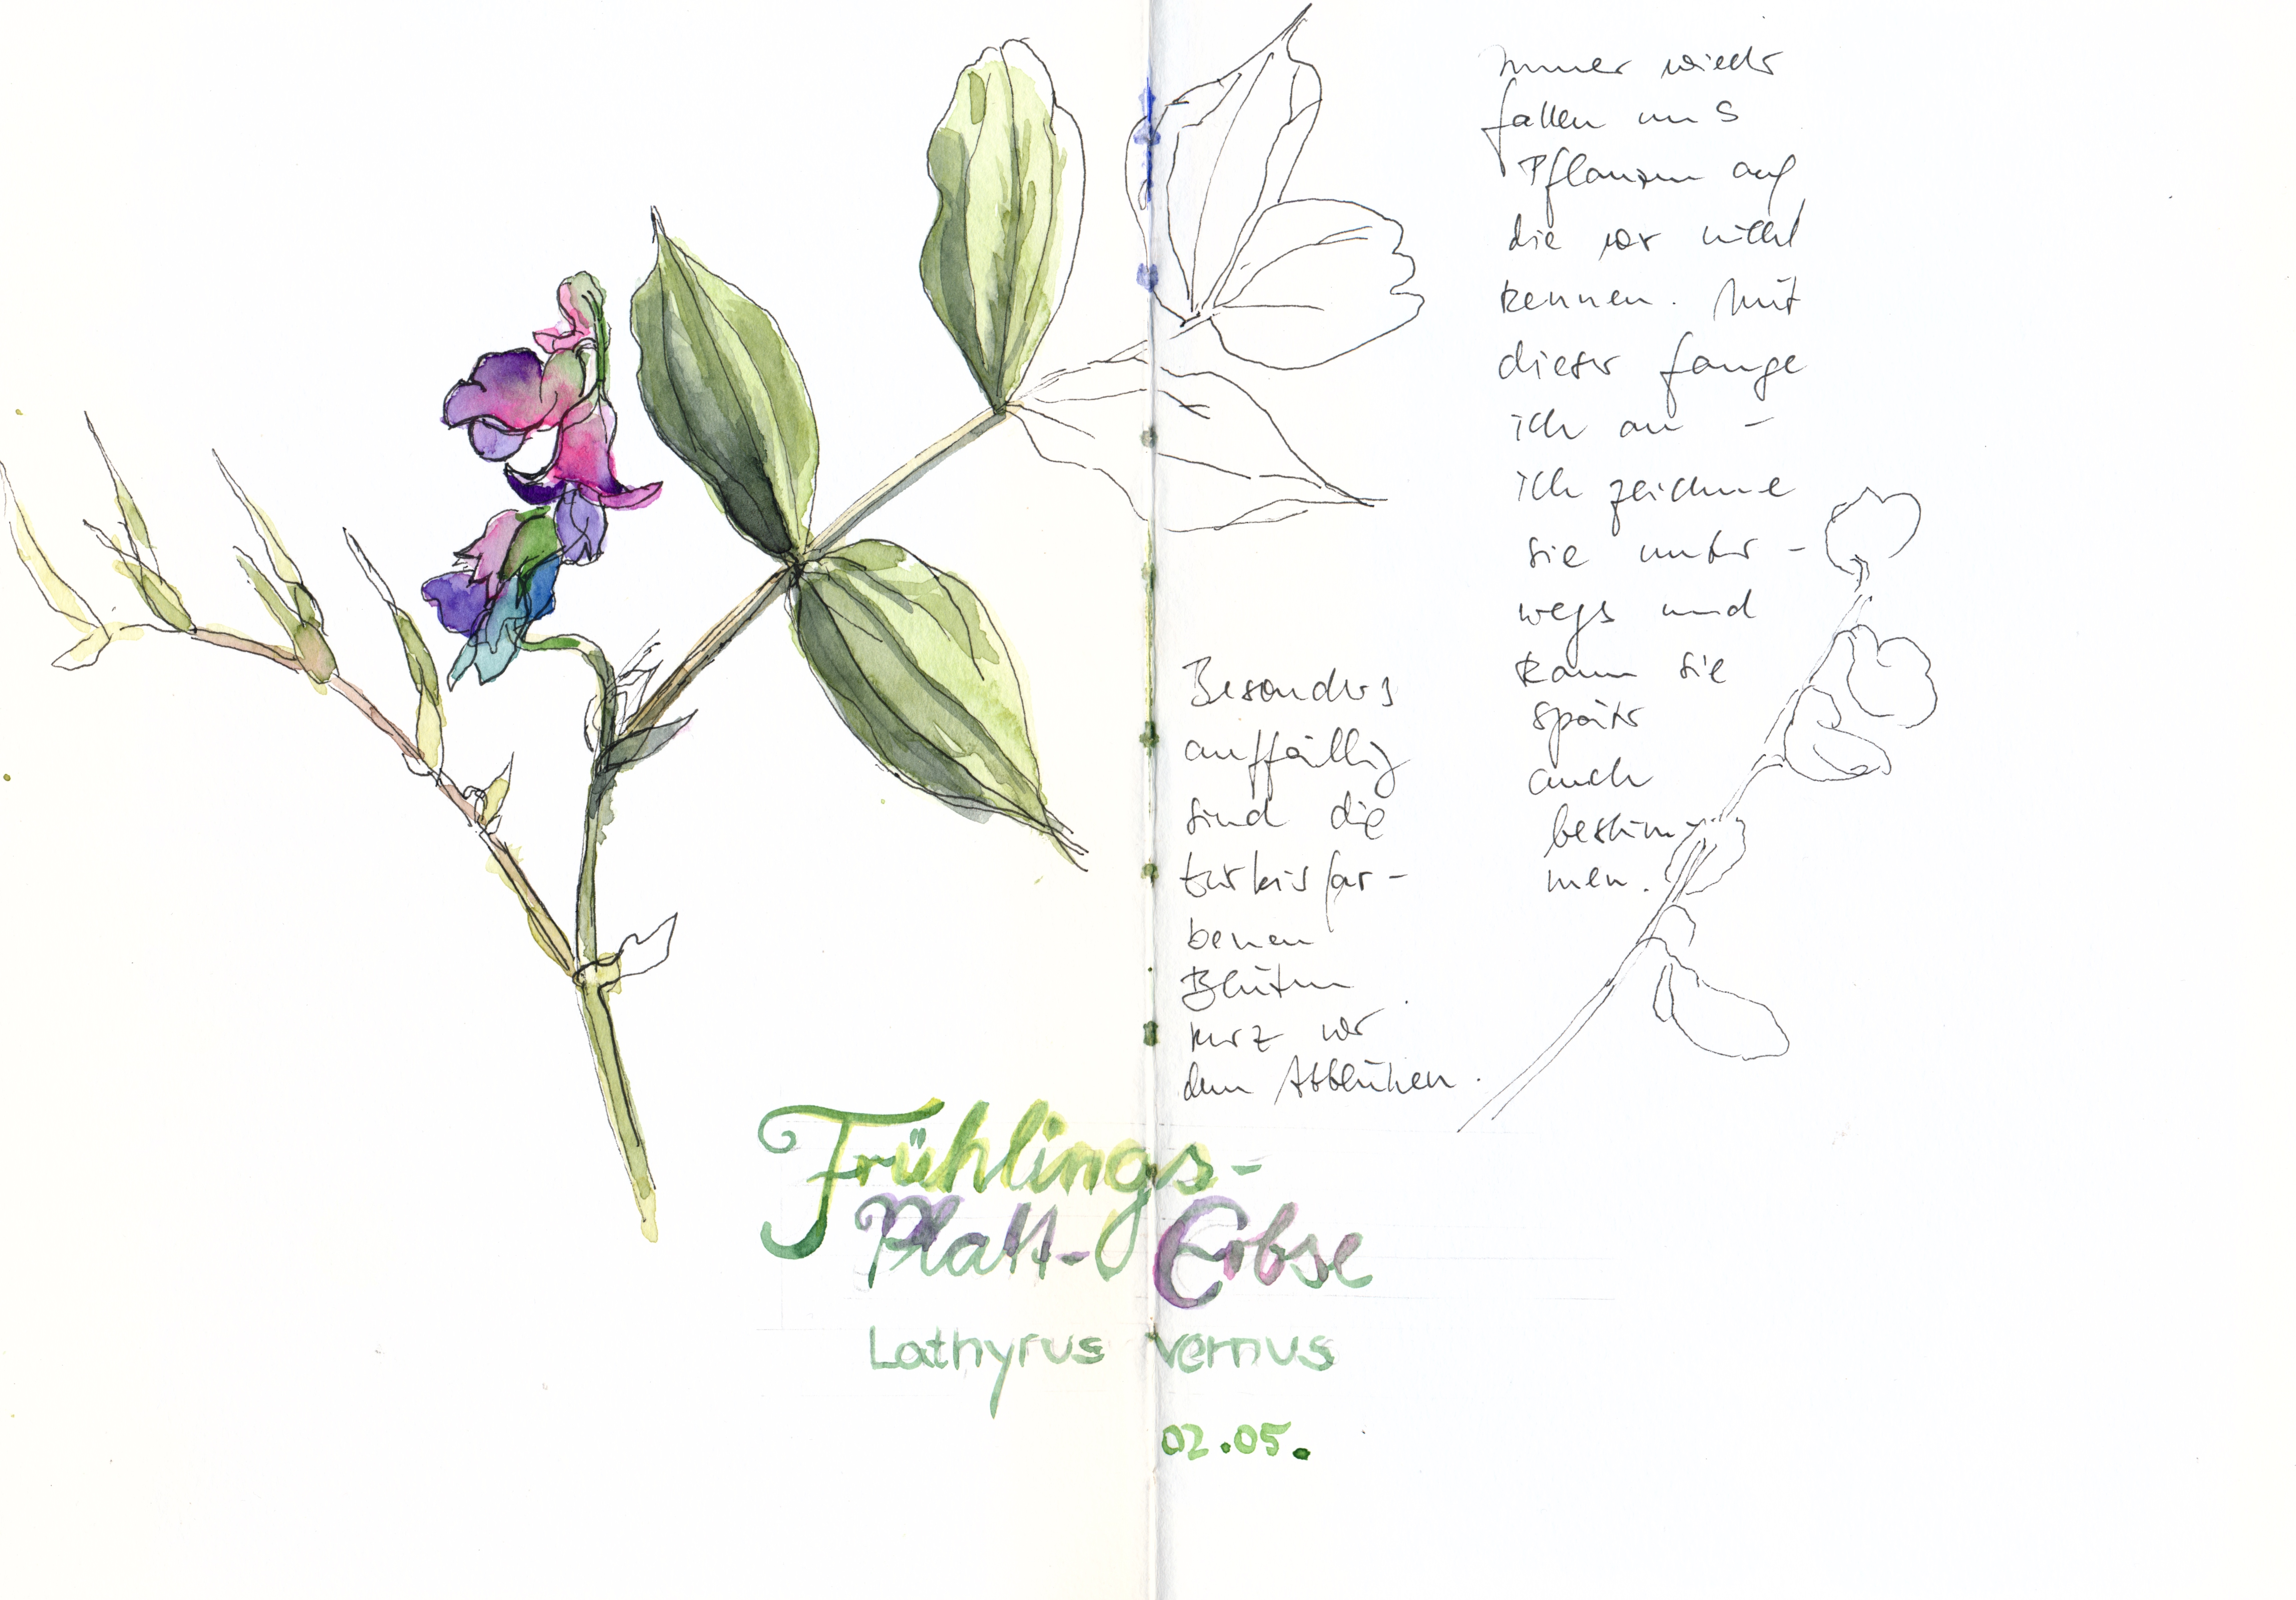 Immer wieder
fallen uns
Pflanzen auf
die wir nicht
kennen. Mit
dieser fange
ich an –
ich zeichne
sie unter-
wegs und
kann sie
später
auch
bestim-
men.
Besonders
auffällig
sind die
türkisfar-
benen
Blüten
kurz vor
dem Abblühen.
Frühlings-
Platt-Erbse
Lathyrus vernus
02.05.